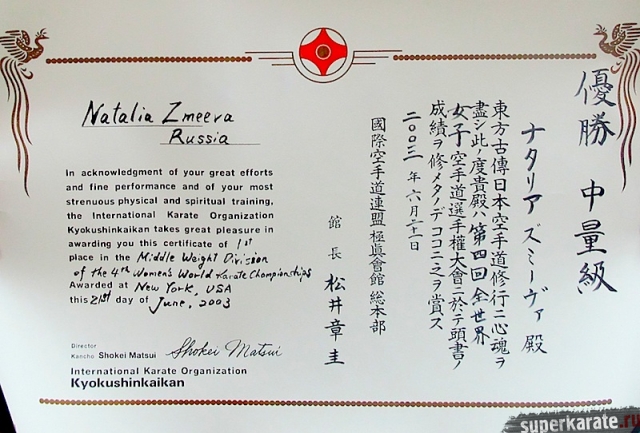 Natalia Zmeeva
Russia
In acknowledgment of your great efforts
and fine performance and of your most
strenuous physical and spiritual training,
the International Karate Organization
Kyokushinkaikan takes great pleasure in
awarding you this certificate of 1st
place in the Middle Weight Division
of the 4th Women's World Karate Championships
Awarded at New York, USA
this 21st day of June, 2003
Director
Kancho Shokei Matsui Shokei Matsui
International Karate Organization
Kyokushinkaikan
優勝 中量級
ナタリア ズミーヴァ 殿
東方古傳日本空手道修行ニ心魂ヲ
盡シ此ノ度貴殿ハ第四回全世界
女子空手道選手權大會ニ於テ頭書ノ
成績ヲ修メタノデココニ之ヲ賞ス
二〇〇三年六月二十一日
國際空手道連盟極眞會館 総本部
館長 松井章圭
superkarate.ru